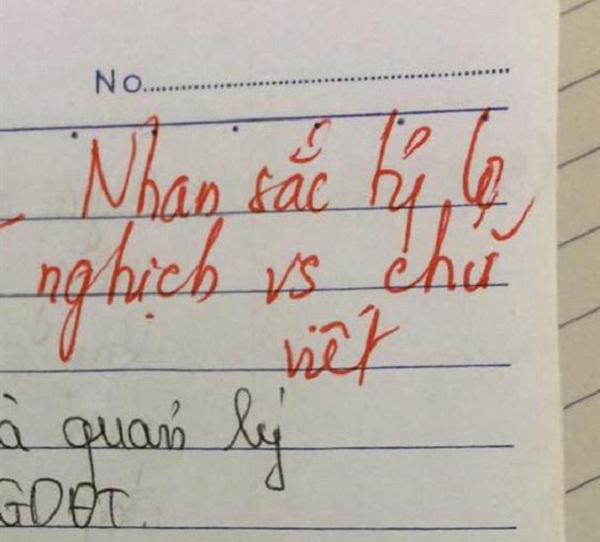 No
Nhan sắc tỷ lệ
nghịch vs chữ
viết
à quản lý
GDĐT.